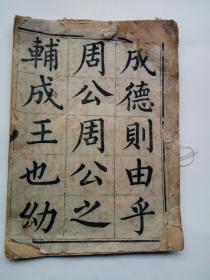 成德則由乎
周公周公之
輔成王也幼